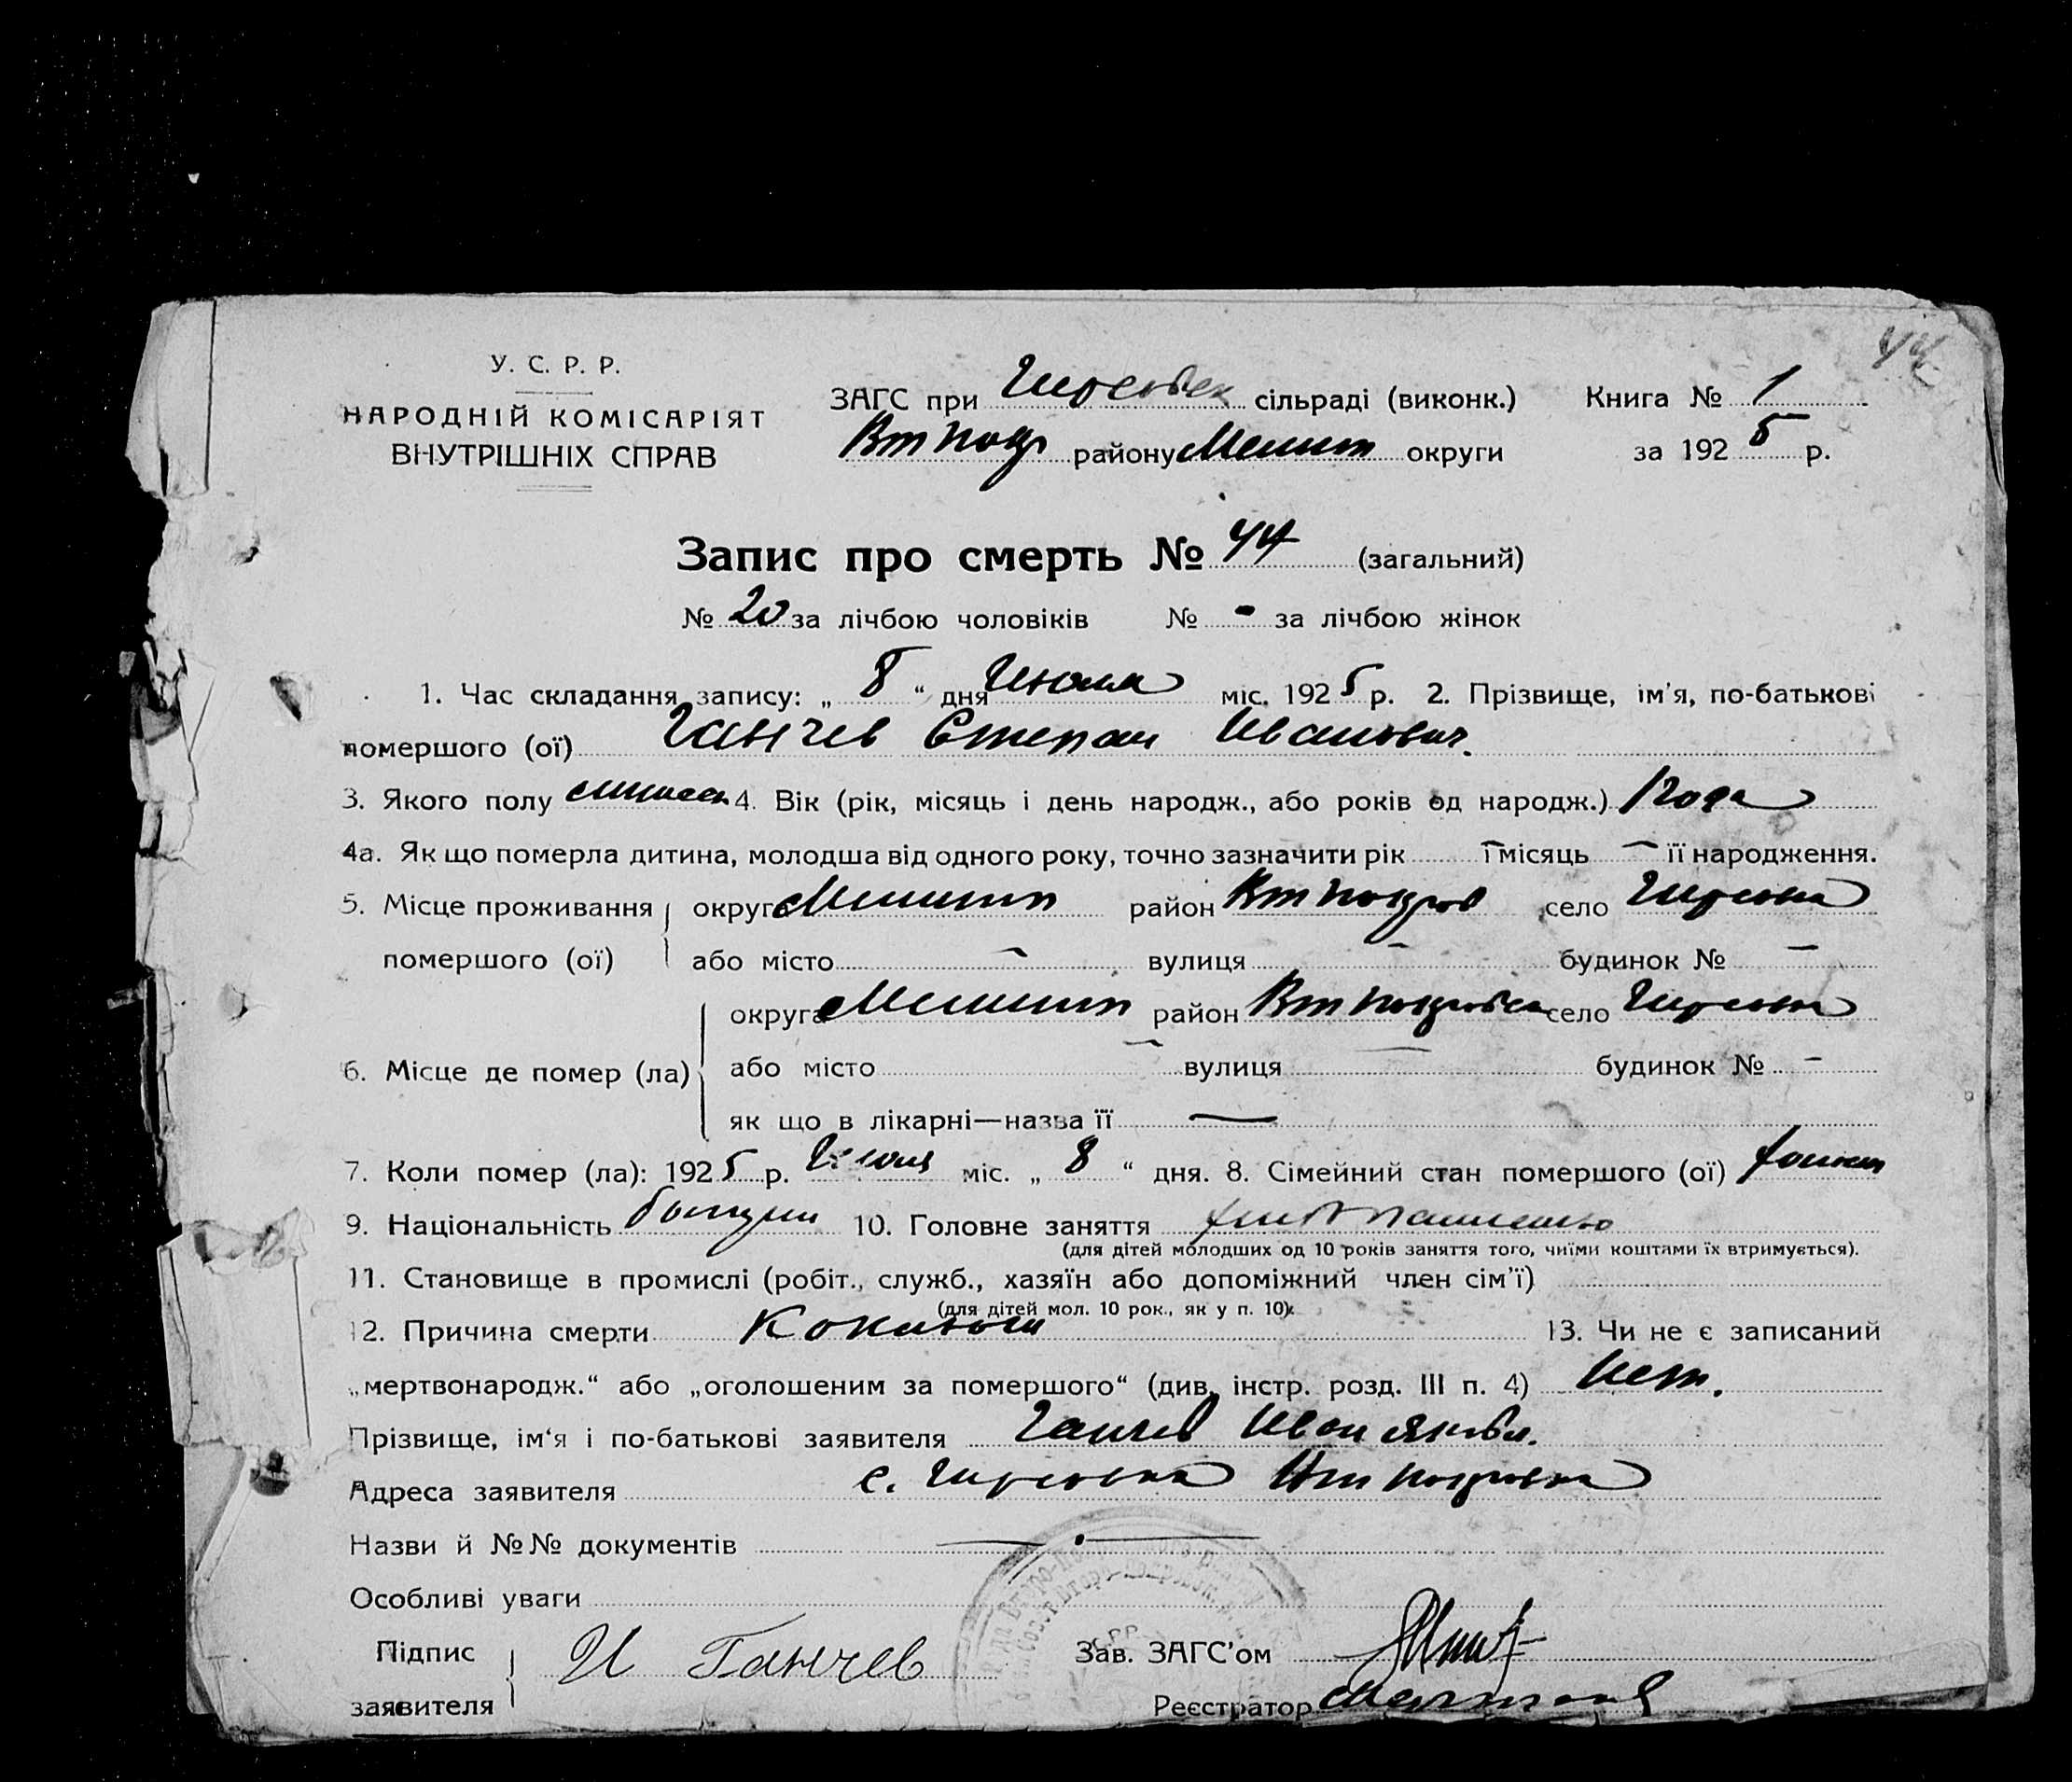 44
У. С. Р. Р.
НАРОДНІЙ КОМІСАРІЯТ
ВНУТРІШНІХ СПРАВ
ЗАГС при сільраді (виконк.) Книга № 1
району Мелит округи за 1925 р.
Запис про смерть № 44 (загальний)
№ 20 за лічбою чоловіків № - за лічбою жінок
1. Час складання запису: „ 8 “ дня Июля міс. 1925 р. 2. Прізвище, ім'я, по-батькові
помершого (ої) Ганчев Степан Иванович.
3. Якого полу 4. Вік (рік, місяць і день народж., або років од народж.) 1 года
4а. Як що померла дитина, молодша від одного року, точно зазначити рік — і місяць — її народження.
5. Місце проживання округа Мелит район Вт Покров село
помершого (ої) або місто — вулиця — будинок № —
округа Мелит район Вт Покровск село
6. Місце де помер (ла) або місто — вулиця — будинок № —
як що в лікарні—назва її —
7. Коли помер (ла): 1925 р. Июля міс. „ 8 “ дня. 8. Сімейний стан помершого (ої)
9. Національність 10. Головне заняття
(для дітей молодших од 10 років заняття того, чиїми коштами їх втримується).
11. Становище в промислі (робіт., служб., хазяїн або допоміжний член сім'ї)
(для дітей мол. 10 рок., як у п. 10).
12. Причина смерти Коклюш 13. Чи не є записаний
„мертвонародж.“ або „оголошеним за помершого“ (див. інстр. розд. III п. 4) Нет.
Прізвище, ім'я і по-батькові заявителя Ганчев Иван Яковл.
Адреса заявителя с. Покровка
Назви й №№ документів —
Особливі уваги
Підпис заявителя И Ганчев Зав. ЗАГС'ом
Реєстратор